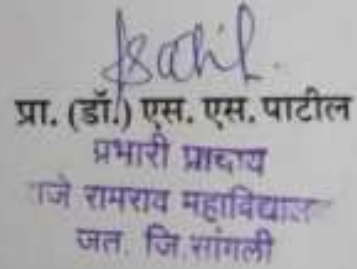 प्रा. (डॉ.) एस. एस. पाटील
प्रभारी प्राचार्य
राजे रामराव महाविद्यालय
जत. जि.सांगली